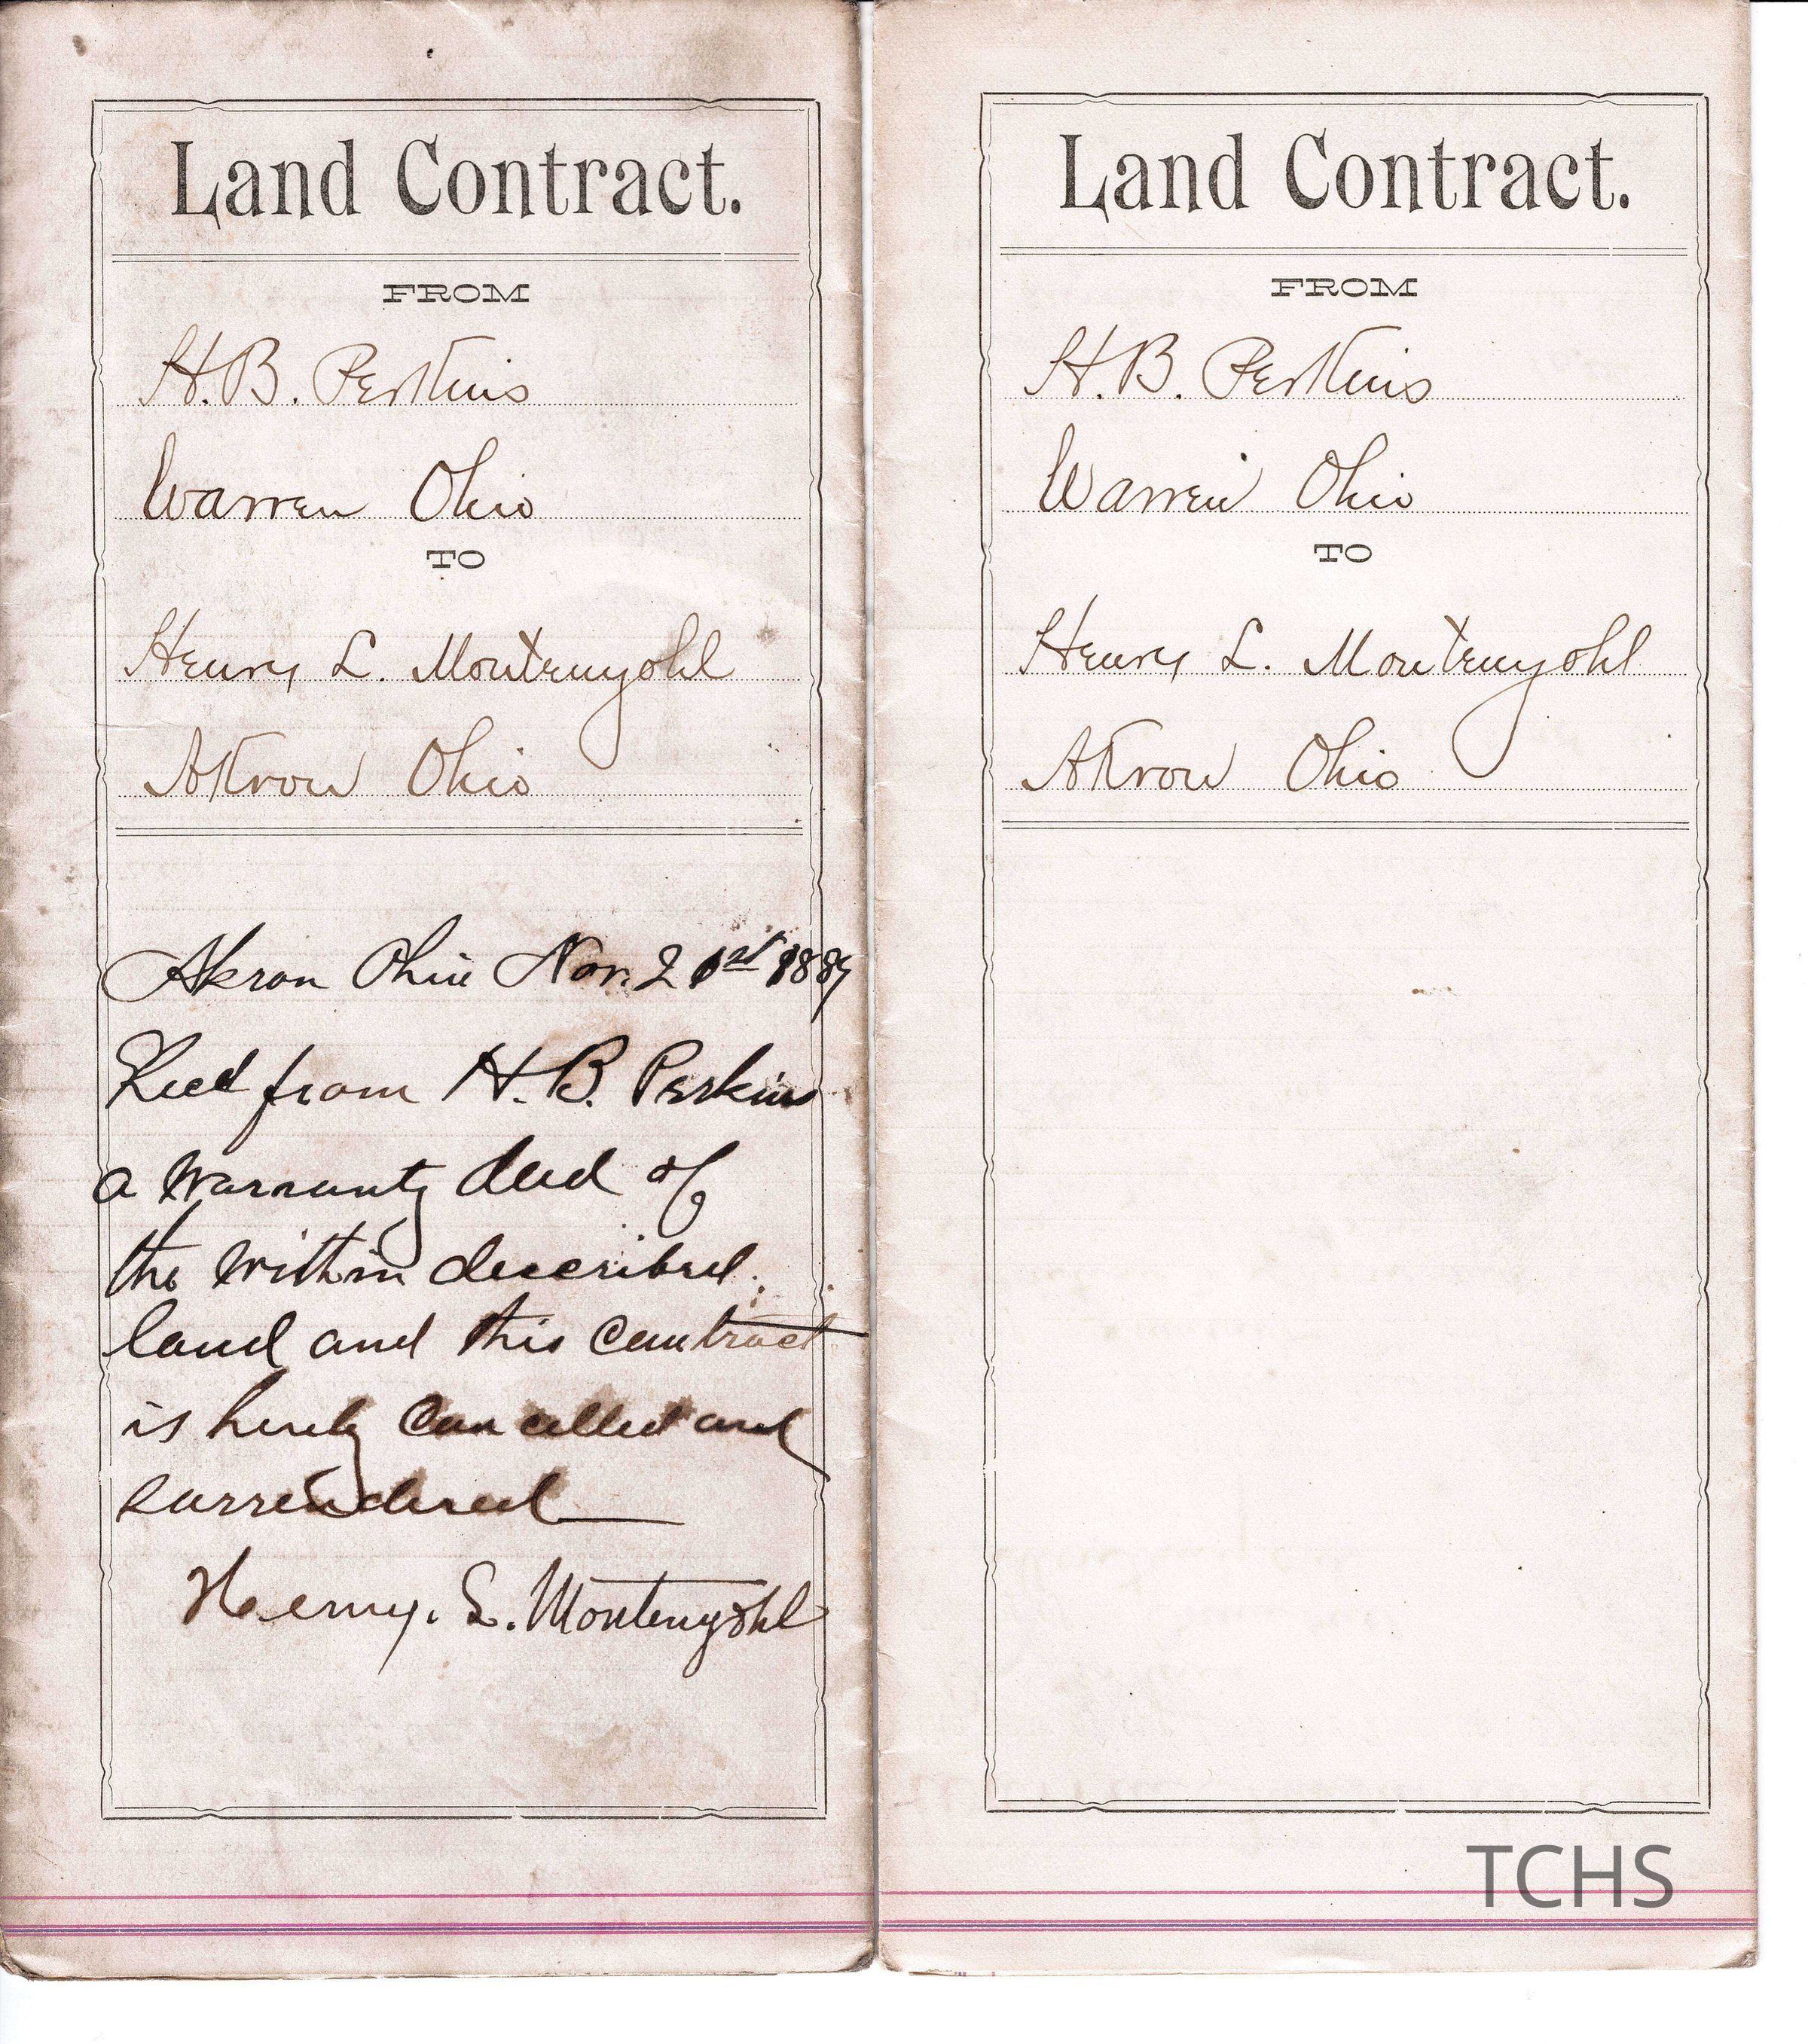 Land Contract.
FROM
H. B. Perkins
Warren Ohio
TO
Henry L. Montenyohl
Akron Ohio
Akron Ohio Nov. 21st 1889
Recd from H. B. Perkins
a Warranty deed of
the within described
land and this contract
is hereby cancelled and
surrendered
Henry. L. Montenyohl
Land Contract.
FROM
H. B. Perkins
Warren Ohio
TO
Henry L. Montenyohl
Akron Ohio
TCHS